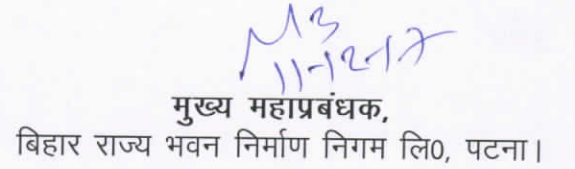 11-12-17
मुख्य महाप्रबंधक,
बिहार राज्य भवन निर्माण निगम लि0, पटना।